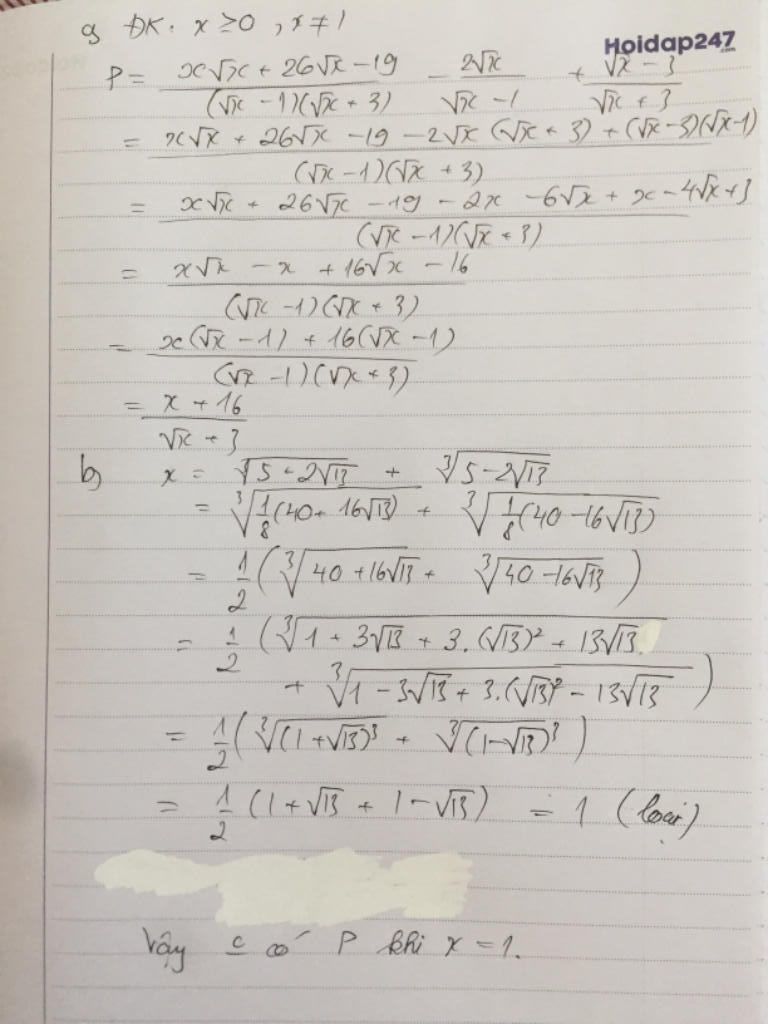 a, ĐK: x ≥ 0, x ≠ 1
Hoidap247.com
P = (x√x + 26√x - 19)/((√x - 1)(√x + 3)) - 2√x/(√x - 1) + (√x - 3)/(√x + 3)
= (x√x + 26√x - 19 - 2√x(√x + 3) + (√x - 3)(√x - 1))/((√x - 1)(√x + 3))
= (x√x + 26√x - 19 - 2x - 6√x + x - 4√x + 3)/((√x - 1)(√x + 3))
= (x√x - x + 16√x - 16)/((√x - 1)(√x + 3))
= (x(√x - 1) + 16(√x - 1))/((√x - 1)(√x + 3))
= (x + 16)/(√x + 3)
b, x = √(5 - 2√13) + ∛(5 - 2√13)
= ∛(1/8(40 + 16√13)) + ∛(1/8(40 - 16√13))
= 1/2(∛(40 + 16√13) + ∛(40 - 16√13))
= 1/2(∛(1 + 3√13 + 3.(√13)² + 13√13)
+ ∛(1 - 3√13 + 3.(√13)² - 13√13))
= 1/2(∛((1 + √13)³) + ∛((1 - √13)³))
= 1/2(1 + √13 + 1 - √13) = 1 (loại)
Vậy c có P khi x = 1.